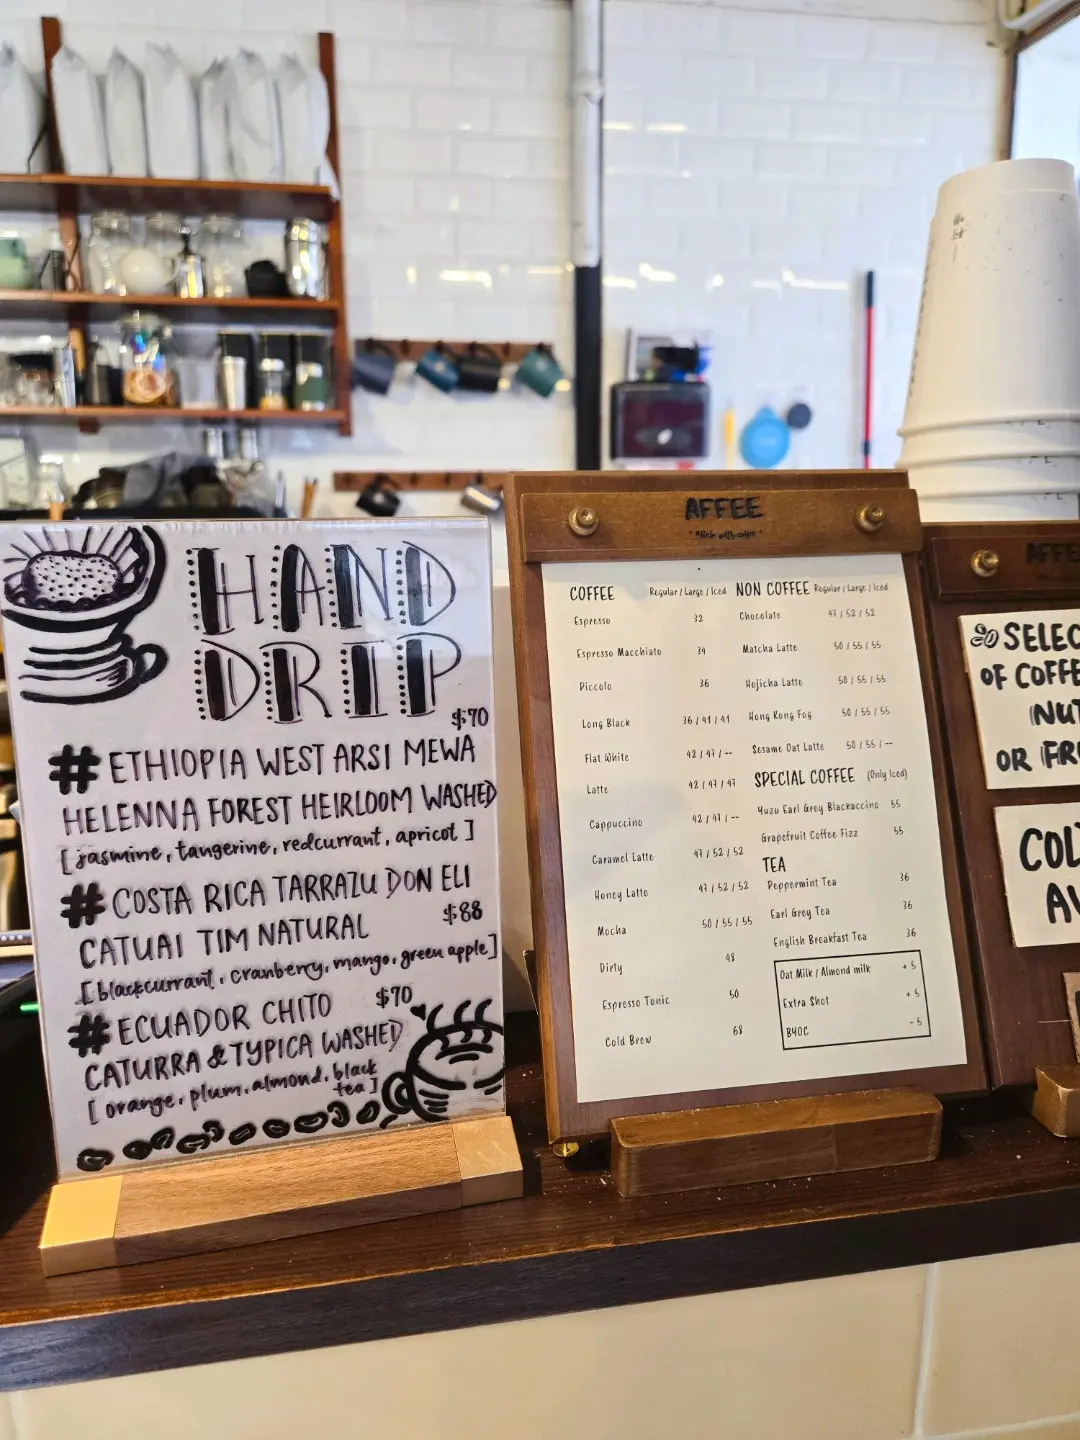 HAND
DRIP
$70
# ETHIOPIA WEST ARSI MEWA
HELENNA FOREST HEIRLOOM WASHED
[jasmine, tangerine, redcurrant, apricot]
# COSTA RICA TARRAZU DON ELI
$88
CATUAI TIM NATURAL
[blackcurrant, cranberry, mango, green apple]
# ECUADOR CHITO $70
CATURRA & TYPICA WASHED
[orange, plum, almond, black
tea]
AFFEE
COFFEE Regular / Large / Iced
Espresso 32
Espresso Macchiato 34
Piccolo 36
Long Black 36 / 41 / 41
Flat White 42 / 47 / --
Latte 42 / 47 / 47
Cappuccino 42 / 47 / --
Caramel Latte 47 / 52 / 52
Honey Latte 47 / 52 / 52
Mocha 50 / 55 / 55
Dirty 48
Espresso Tonic 50
Cold Brew 68
NON COFFEE Regular / Large / Iced
Chocolate 47 / 52 / 52
Matcha Latte 50 / 55 / 55
Hojicha Latte 50 / 55 / 55
Hong Kong Fog 50 / 55 / 55
Sesame Oat Latte 50 / 55 / --
SPECIAL COFFEE (Only Iced)
Yuzu Earl Grey Blackaccino 55
Grapefruit Coffee Fizz 55
TEA
Peppermint Tea 36
Earl Grey Tea 36
English Breakfast Tea 36
Oat Milk / Almond milk + 5
Extra Shot + 5
BYOC - 5
AFFE
SELEC
OF COFFE
(NU
OR (FR
COL
A